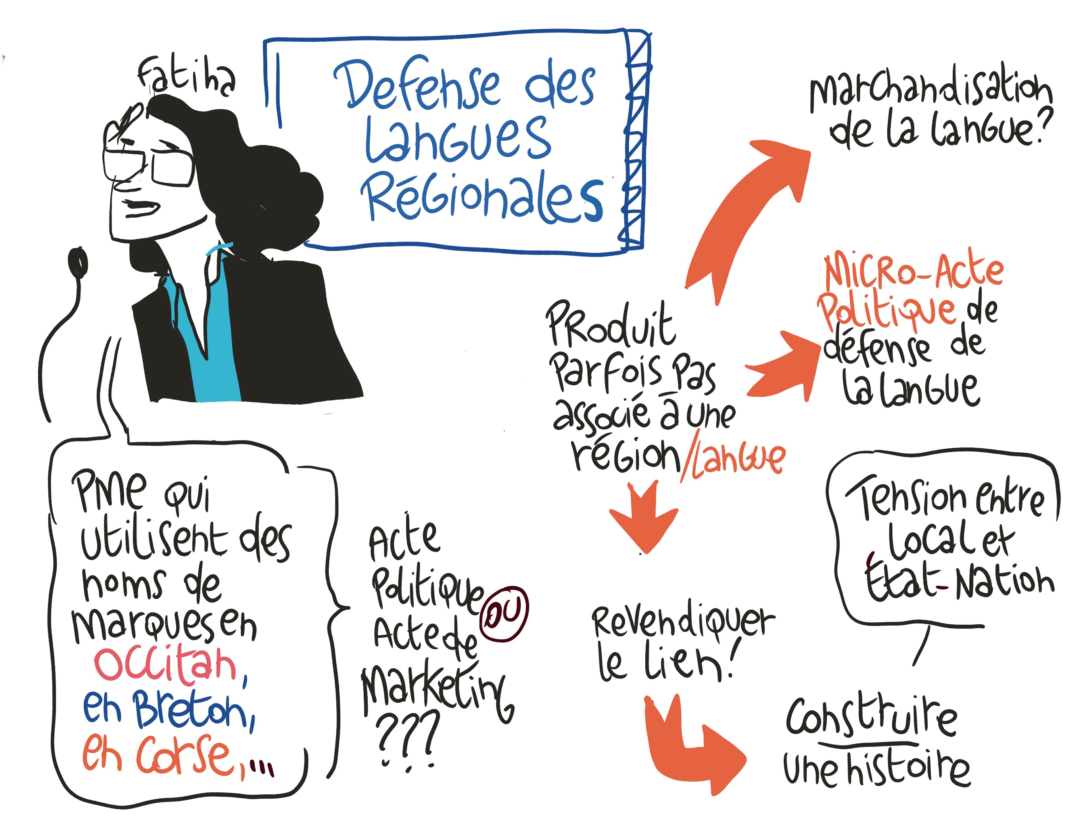 Fatiha
Defense des
Langues
Régionales
PME qui
utilisent des
noms de
marques en
Occitan,
en Breton,
en Corse,...
Acte
Politique OU
Acte de
Marketing
???
Produit
Parfois Pas
associé à une
région/Langue
Marchandisation
de la langue?
Micro-Acte
Politique de
défense de
la langue
Revendiquer
le lien!
Tension entre
Local et
État-Nation
Construire
une histoire